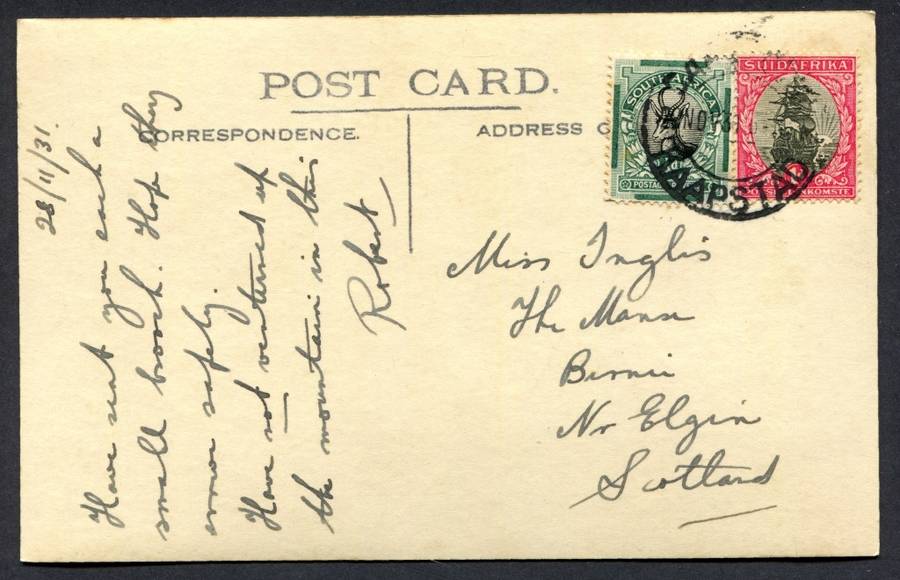 POST CARD.
CORRESPONDENCE.
ADDRESS
28/11/31.
Have sent you each a
small brooch. Hope they
arrive safely.
Have not ventured up
the mountain in this
Robert
SOUTH AFRICA
SUIDAFRIKA
KAAPSTAD
Miss Inglis
The Manse
Birnie
Nr Elgin
Scotland